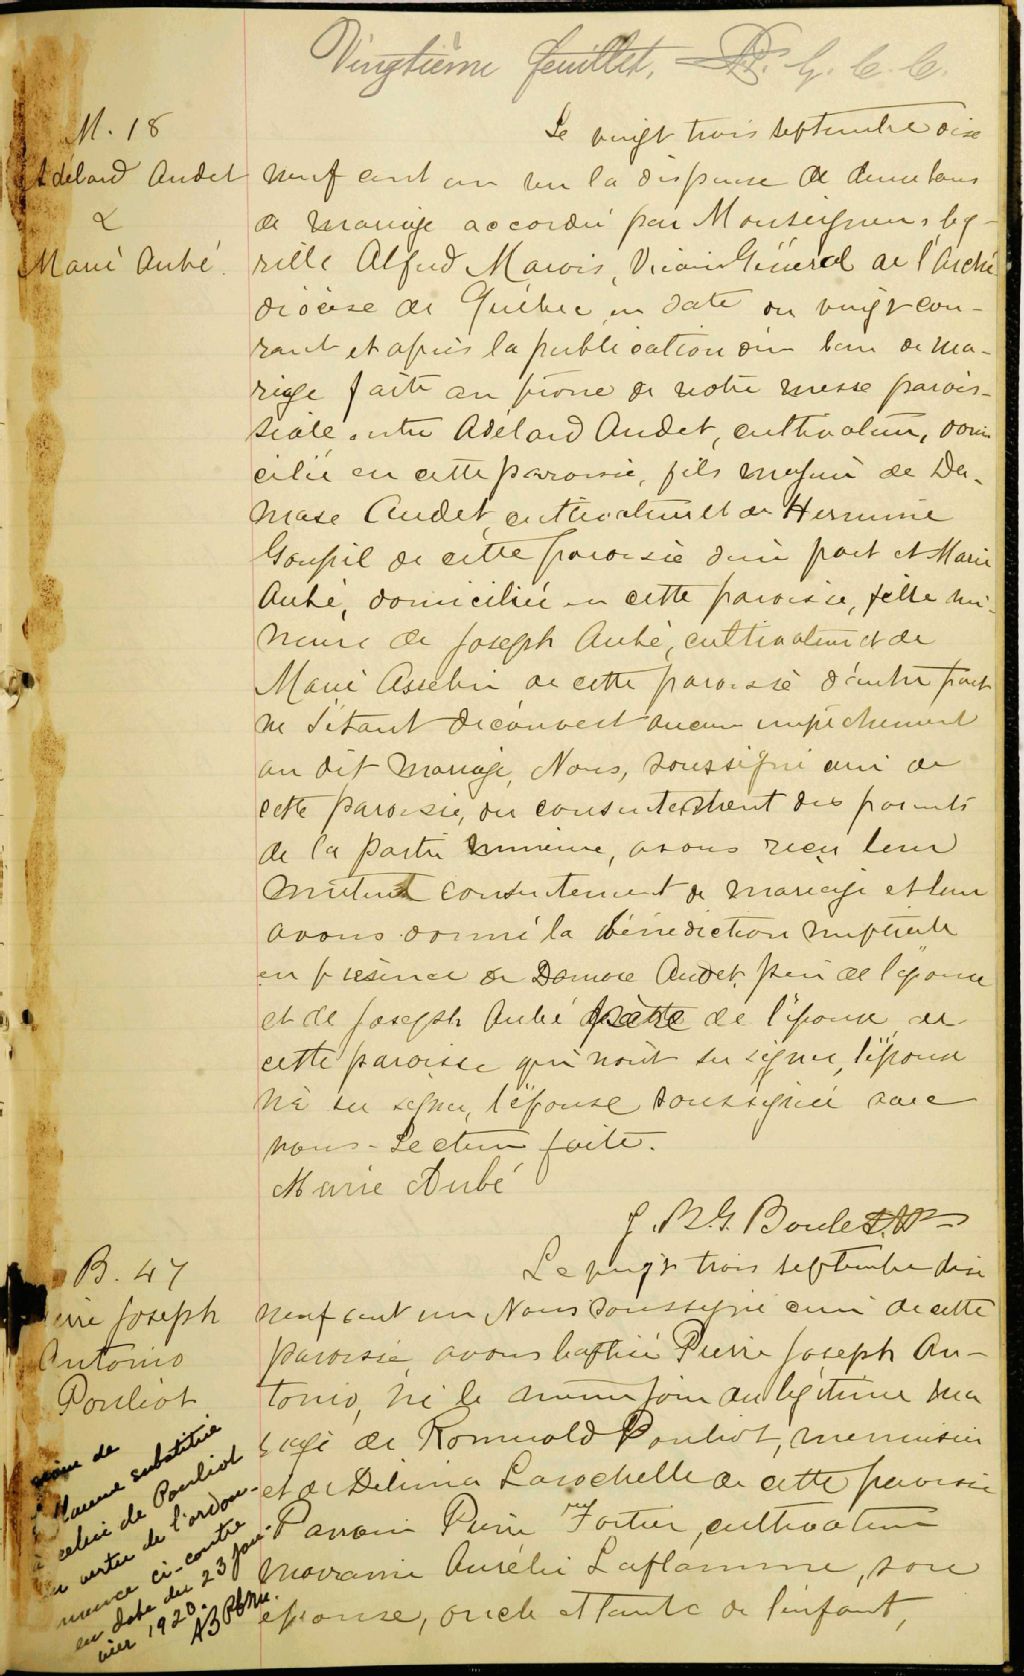 Vingtième feuillet, G. C. C.
M. 18
Adélard Audet
&
Marie Aubé.
Le vingt trois septembre dix
neuf cent un vu la dispense de deux bans
de mariage accordée par Monseigneur Cy-
rille Alfred Marois, Vicaire Général de l'Archi
diocèse de Québec, en date du vingt cou-
rant et après la publication d'un ban de ma-
riage faite au prône de notre messe parois-
siale entre Adélard Audet, cultivateur, domi
cilié en cette paroisse, fils majeur de Da-
mase Audet, cultivateur et de Hermine
Goupil de cette paroisse d'une part et Marie
Aubé, domiciliée en cette paroisse, fille mi-
neure de Joseph Aubé, cultivateur et de
Marie Asselin de cette paroisse d'autre part
ne s'étant découvert aucun empêchement
au dit mariage, Nous, soussigné curé de
cette paroisse, du consentement des parents
de la partie mineure, avons reçu leur
mutuel consentement de mariage et leur
avons donné la bénédiction nuptiale
en présence de Damase Audet, père de l'époux
et de Joseph Aubé père de l'épouse de
cette paroisse qui n'ont su signer, l'époux
n'a su signer, l'épouse soussignée avec
nous. Lecture faite.
Marie Aubé
J. B. G. Boulet
B. 47
Pierre Joseph
Antonio
Pouliot
Le vingt trois septembre dix
neuf cent un Nous soussigné curé de cette
paroisse avons baptisé Pierre Joseph An-
tonio, né le même jour du légitime ma
riage de Romuald Pouliot, menuisier
et de Délima Larochelle de cette paroisse
Parrain Pierre Fortier, cultivateur
marraine Aurélie Laflamme, son
épouse, oncle et tante de l'enfant,
nom de
Nanne substitué
à celui de Pouliot
en vertu de l'ordon-
nance ci-contre
en date du 23 jan-
vier 1920.